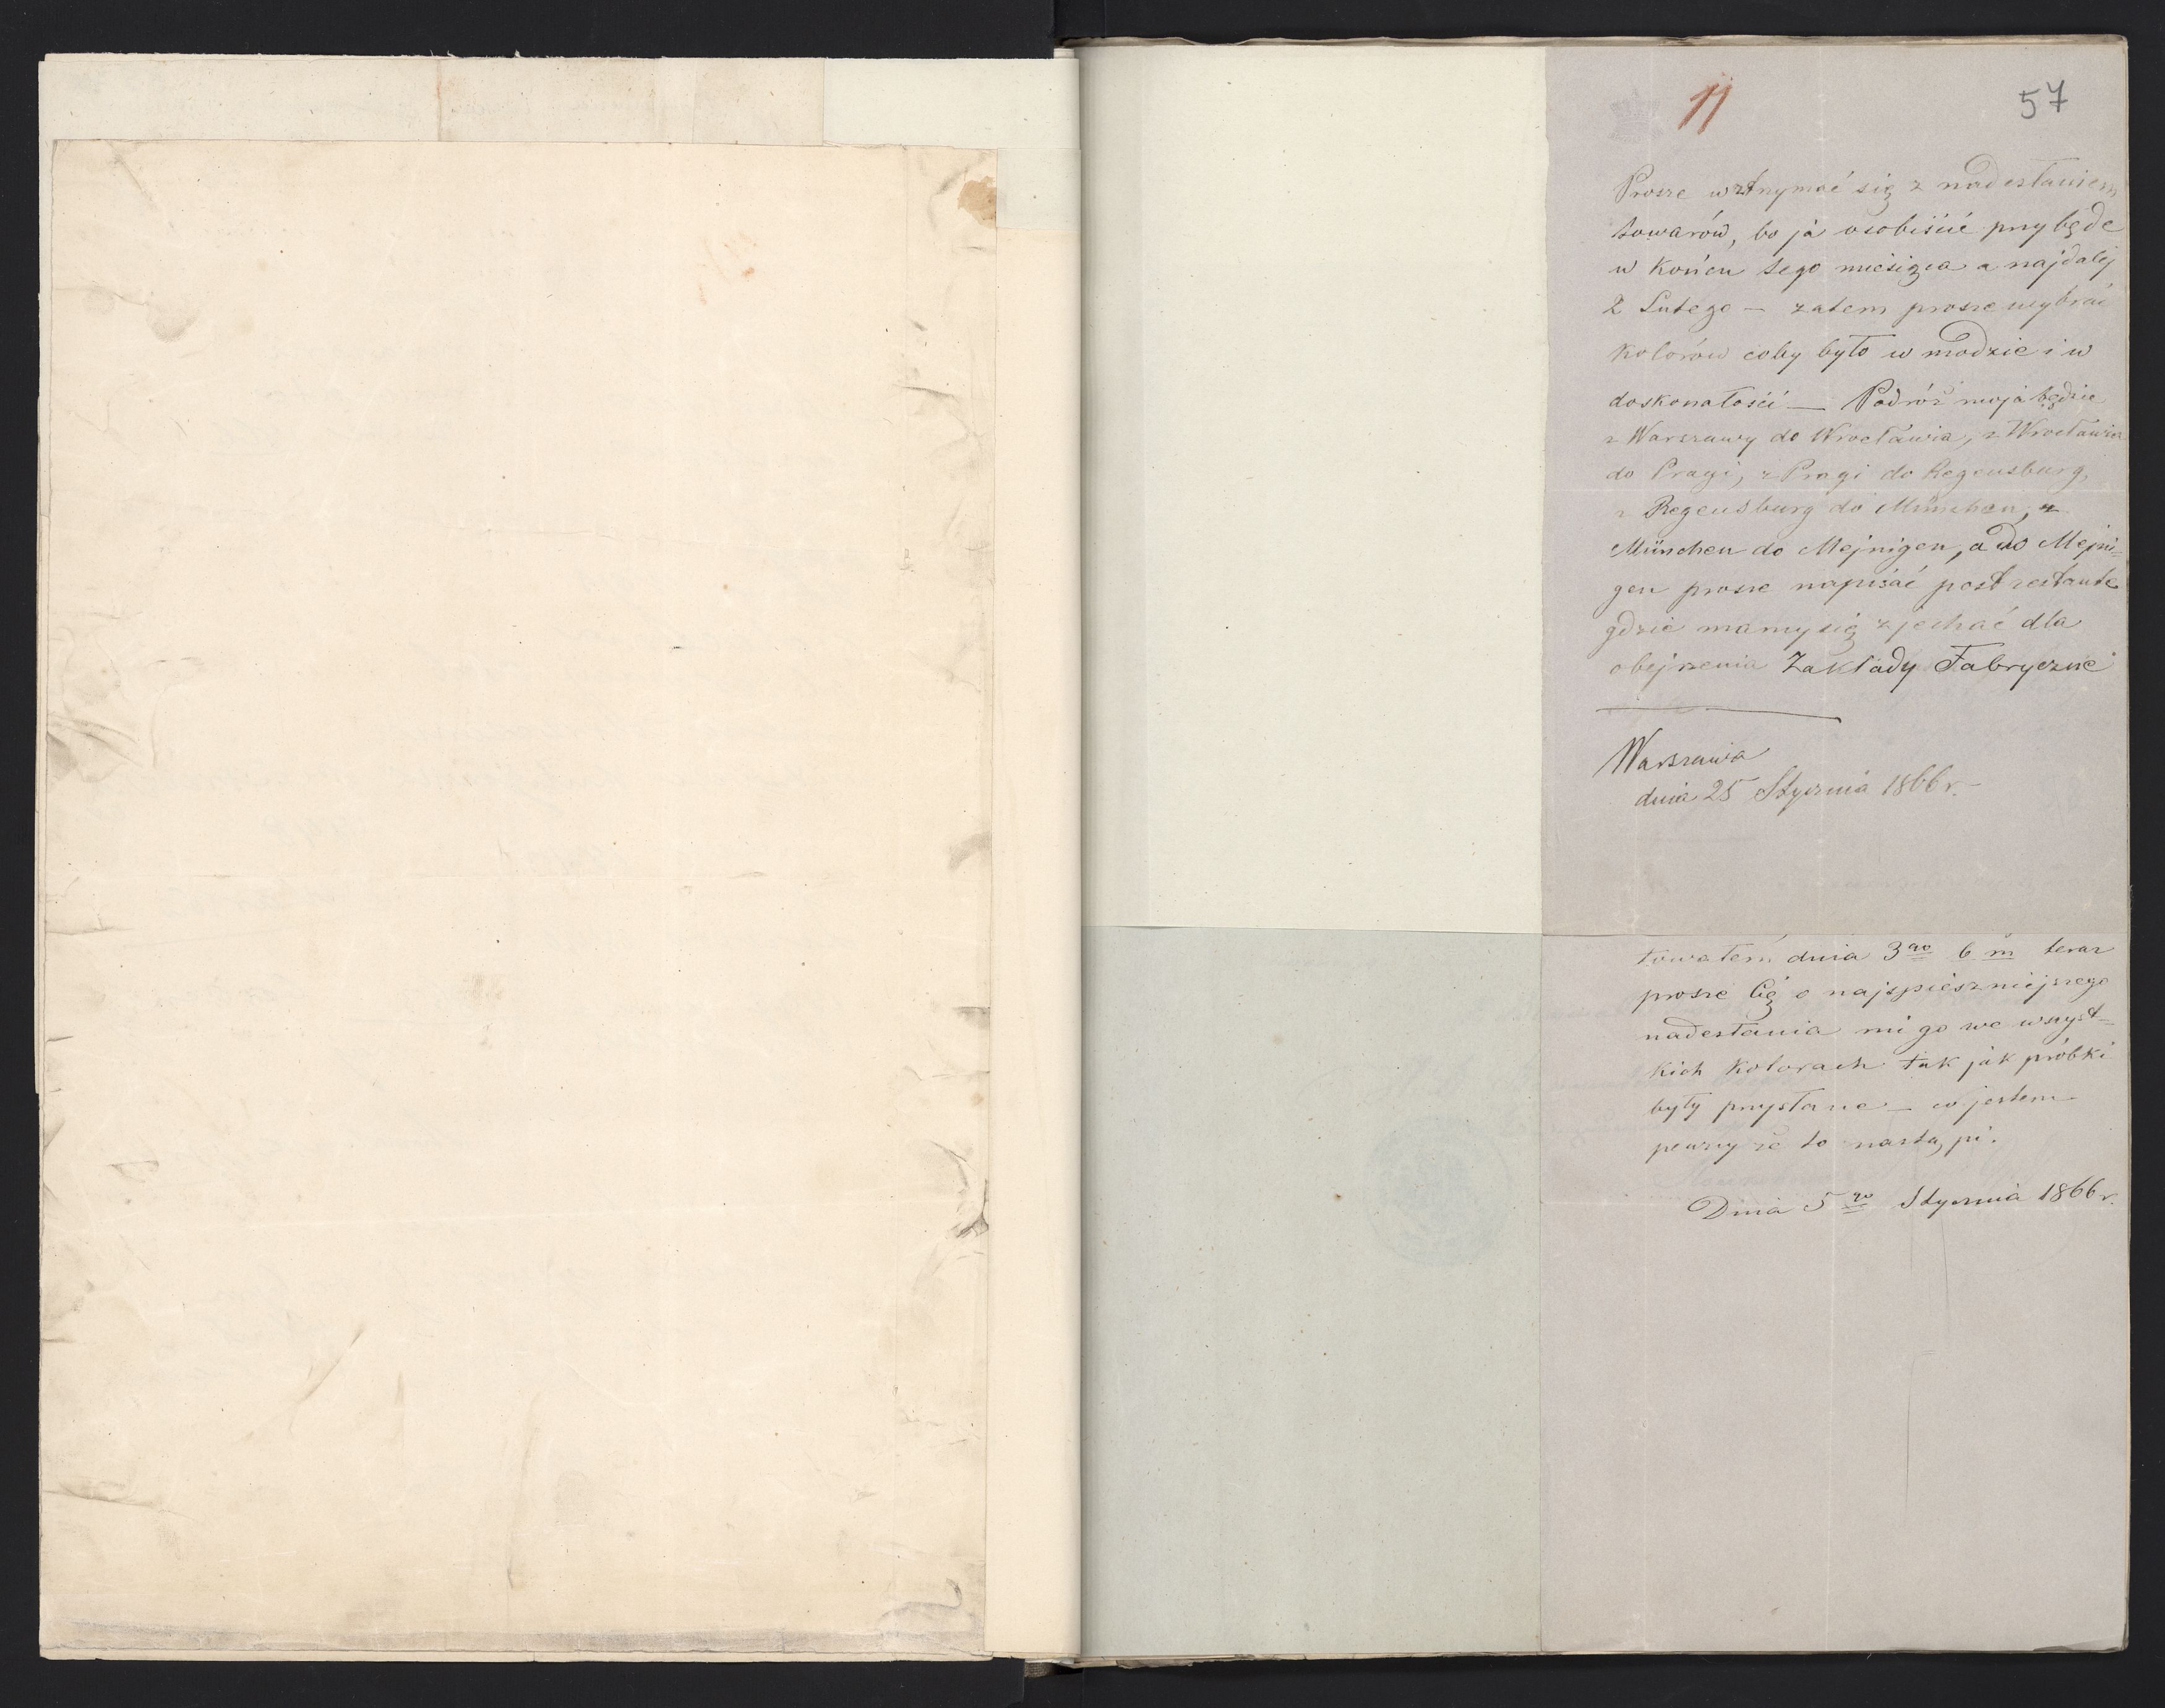 11
57
Prosze wstrzymać się z nadesłaniem
towarów, bo ja osobiście przybęde
w końcu tego miesięca a najdalej
2 Lutego — zatem prosze wybrać
kolorów coby było w modzie i w
doskonałości — Podróż moja będzie
z Warszawy do Wrocławia, z Wrocławia
do Pragi, z Pragi do Regensburg,
z Regensburg do München, z
München do Mejnigen, a do Mejni=
gen prosze napisać post restante
gdzie mamy się zjechać dla
obejrzenia Zakłady Fabryczne
Warszawa
dnia 25 Stycznia 1866 r. –
towałem dnia 3go b. m teraz
prosze Cię o najspieszniejszego
nadesłania mi go we wszyst=
kich kolorach tak jak próbki
były przysłane – co jestem
pewny że to nastąpi.
Dnia 5go Stycznia 1866 r.